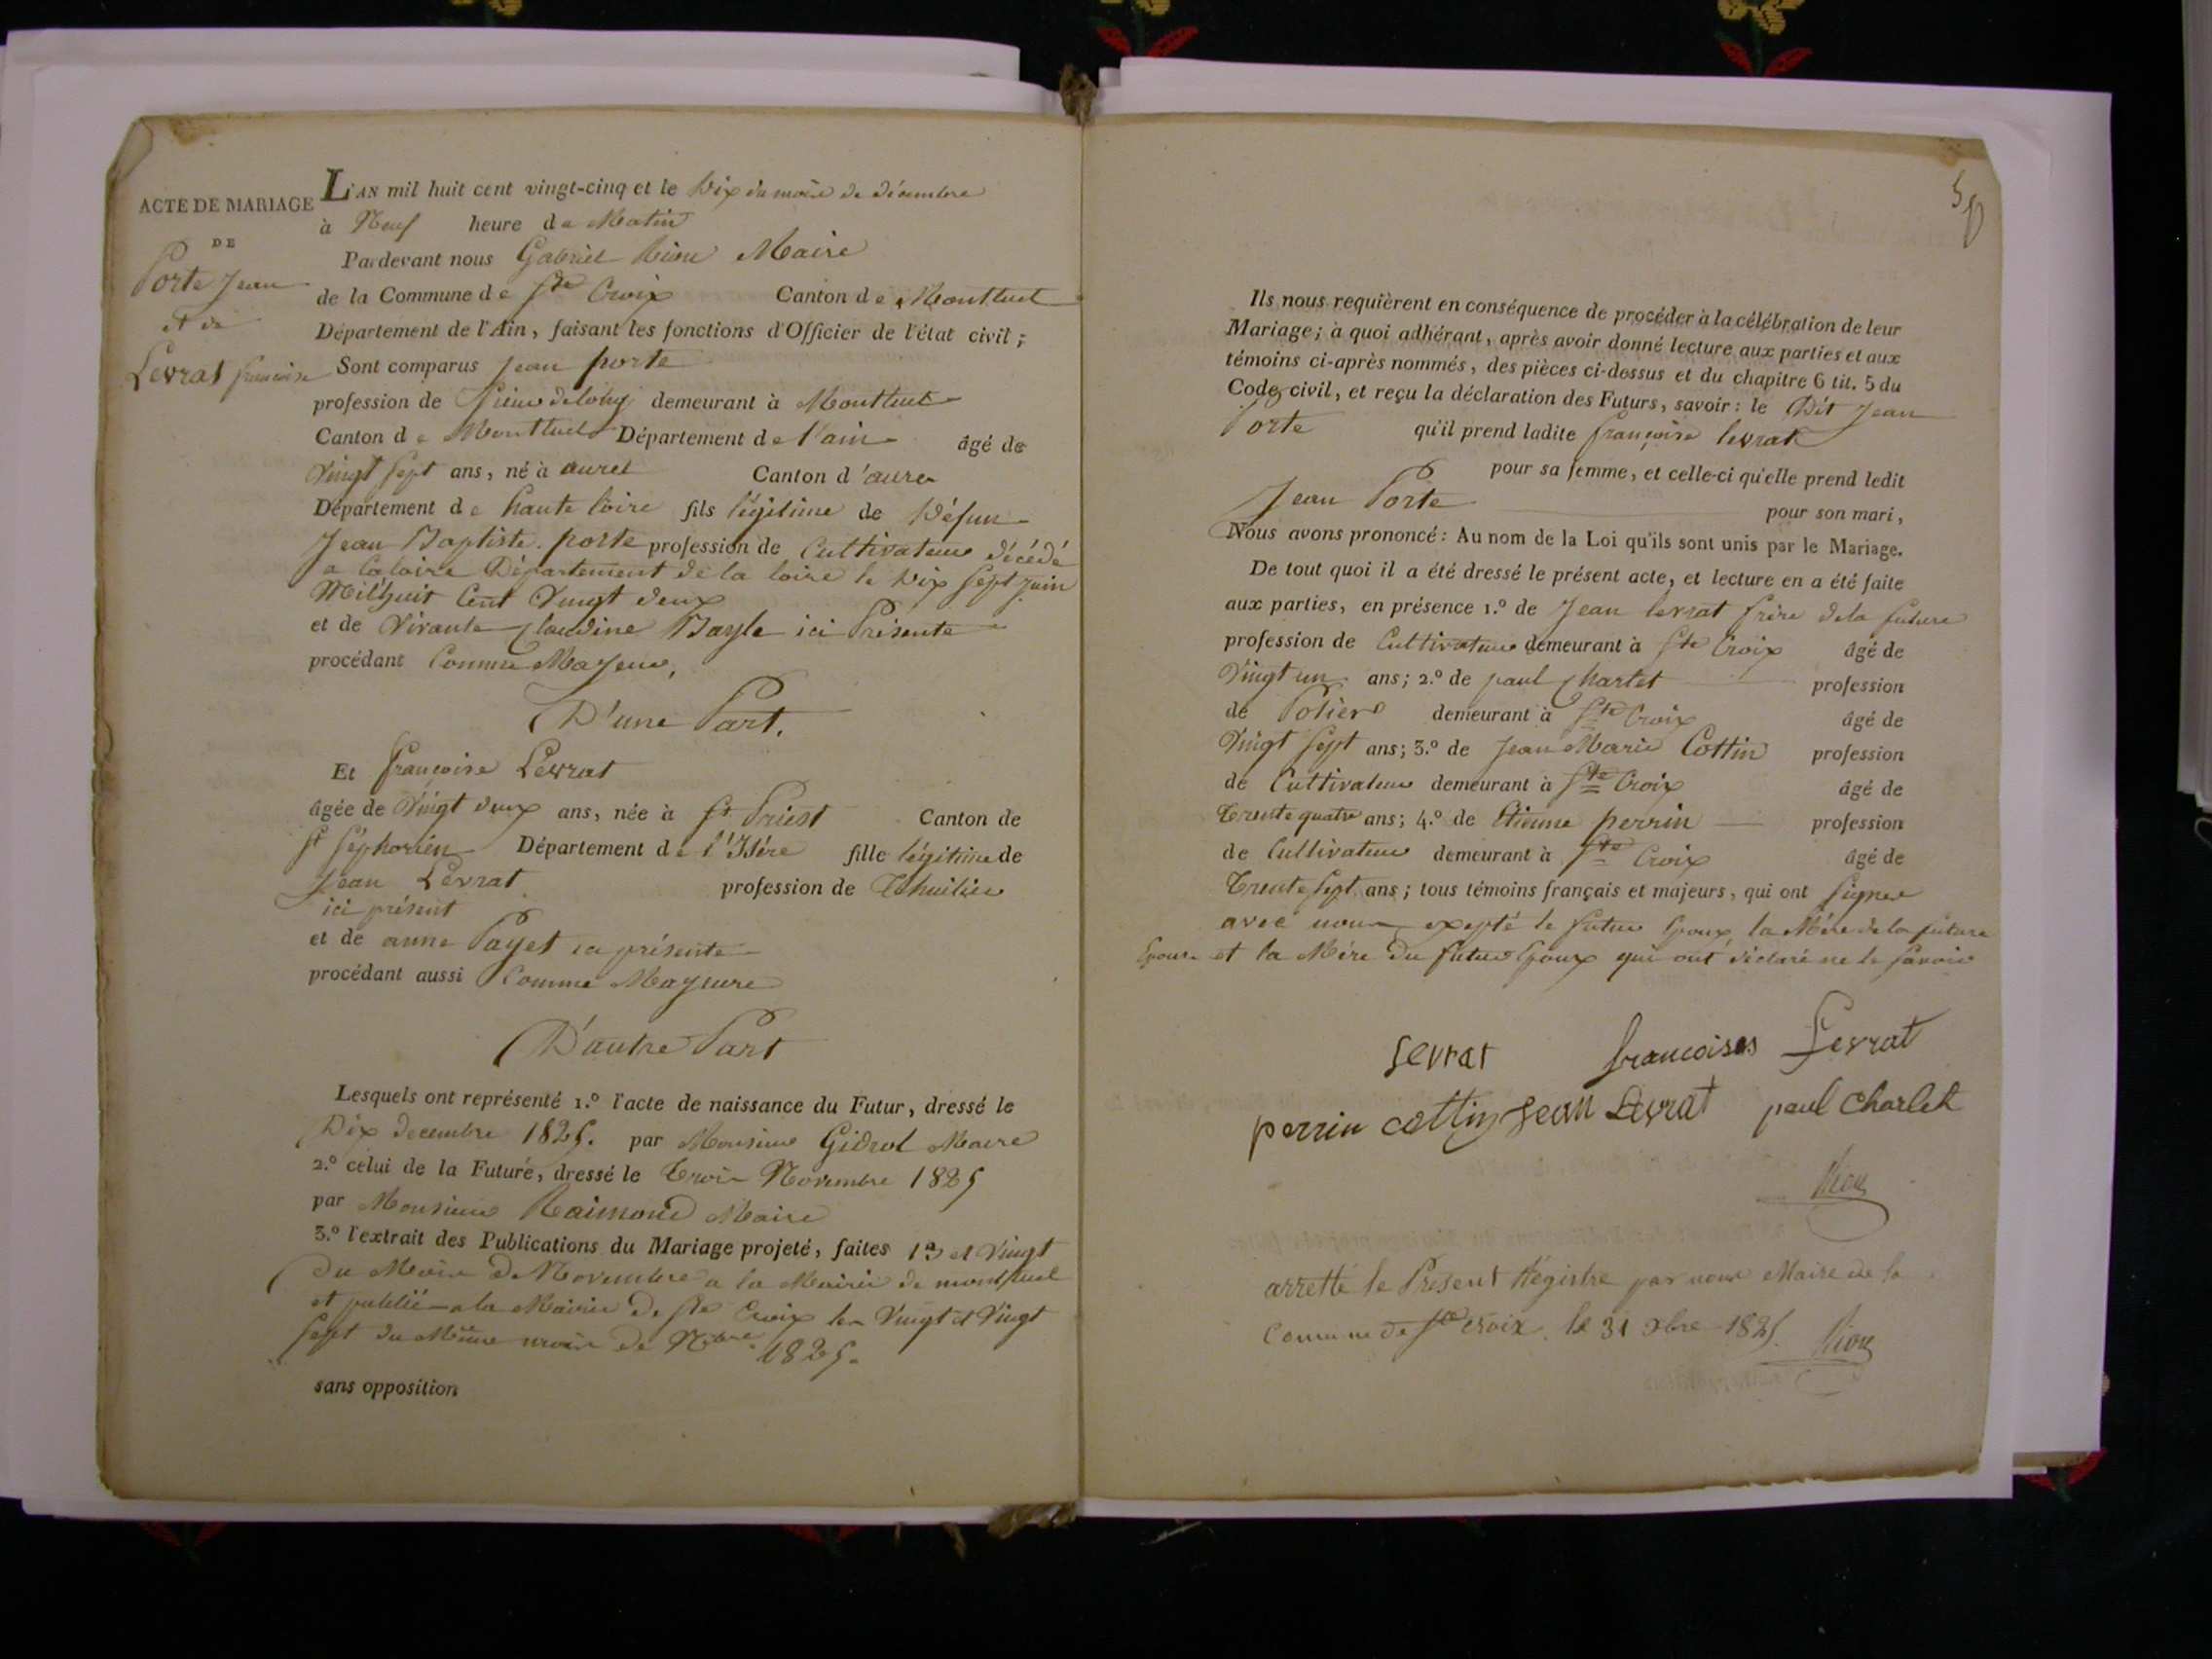 ACTE DE MARIAGE
DE
Porte Jean
et de
Levrat françoise
L'AN mil huit cent vingt-cinq et le Dix du mois de décembre
à Neuf heure de Matin
Pardevant nous Gabriel Maire
de la Commune de Ste Croix Canton de Montluel
Département de l'Ain, faisant les fonctions d'Officier de l'état civil;
Sont comparus Jean porte
profession de demeurant à Montluel
Canton de Montluel Département de l'ain âgé de
Vingt Sept ans, né à aurel Canton d'aurea
Département de haute loire fils légitime de Défun
Jean Baptiste porte profession de Cultivateur décédé
a Département de la loire le Dix Sept juin
Mil huit Cent Vingt deux
et de Vivante Claudine Bayle ici Présente
procédant Comme Majeur,
D'une Part.
Et françoise Levrat
âgée de Vingt deux ans, née à St Priest Canton de
St Séphorien Département de l'Isére fille légitime de
Jean Levrat profession de Thuilier
ici présent
et de anne Payet ici présente
procédant aussi Comme Mayeure
D'autre Part
Lesquels ont représenté 1.º l'acte de naissance du Futur, dressé le
Dix decembre 1825. par Monsieur Gidrol Maire
2.º celui de la Future, dressé le trois Novembre 1825
par Monsieur Raimond Maire
3.º l'extrait des Publications du Mariage projeté, faites 13 et Vingt
du Mois De Novembre a la Mairie de montluel
et publié a la Mairie De Ste Croix les Vingt et Vingt
Sept du Même mois De Nbre 1825.
sans opposition
50
Ils nous requièrent en conséquence de procéder à la célébration de leur
Mariage; à quoi adhérant, après avoir donné lecture aux parties et aux
témoins ci-après nommés, des pièces ci-dessus et du chapitre 6 tit. 5 du
Code civil, et reçu la déclaration des Futurs, savoir: le Dit Jean
Porte qu'il prend ladite françoise levrat
pour sa femme, et celle-ci qu'elle prend ledit
Jean Porte pour son mari,
Nous avons prononcé: Au nom de la Loi qu'ils sont unis par le Mariage.
De tout quoi il a été dressé le présent acte, et lecture en a été faite
aux parties, en présence 1.º de Jean levrat frère de la future
profession de Cultivateur demeurant à Ste Croix âgé de
Vingt un ans; 2.º de paul Charlet profession
de Potier demeurant à Ste Croix âgé de
Vingt Sept ans; 3.º de Jean Marie Cottin profession
de Cultivateur demeurant à Ste Croix âgé de
Trente quatre ans; 4.º de Etienne perrin profession
de Cultivateur demeurant à Ste Croix âgé de
Trente Sept ans; tous témoins français et majeurs, qui ont Signer
avec nous expté le futur Epoux la Mére de la future
Epouse et la Mére du futur Epoux qui ont déclaré ne le Savoir
Levrat francoises Levrat
perrin cottin Jean Levrat paul Charlet
arretté le Present Régistre par nous Maire de la
Comune de Ste croix le 31 xbre 1825.